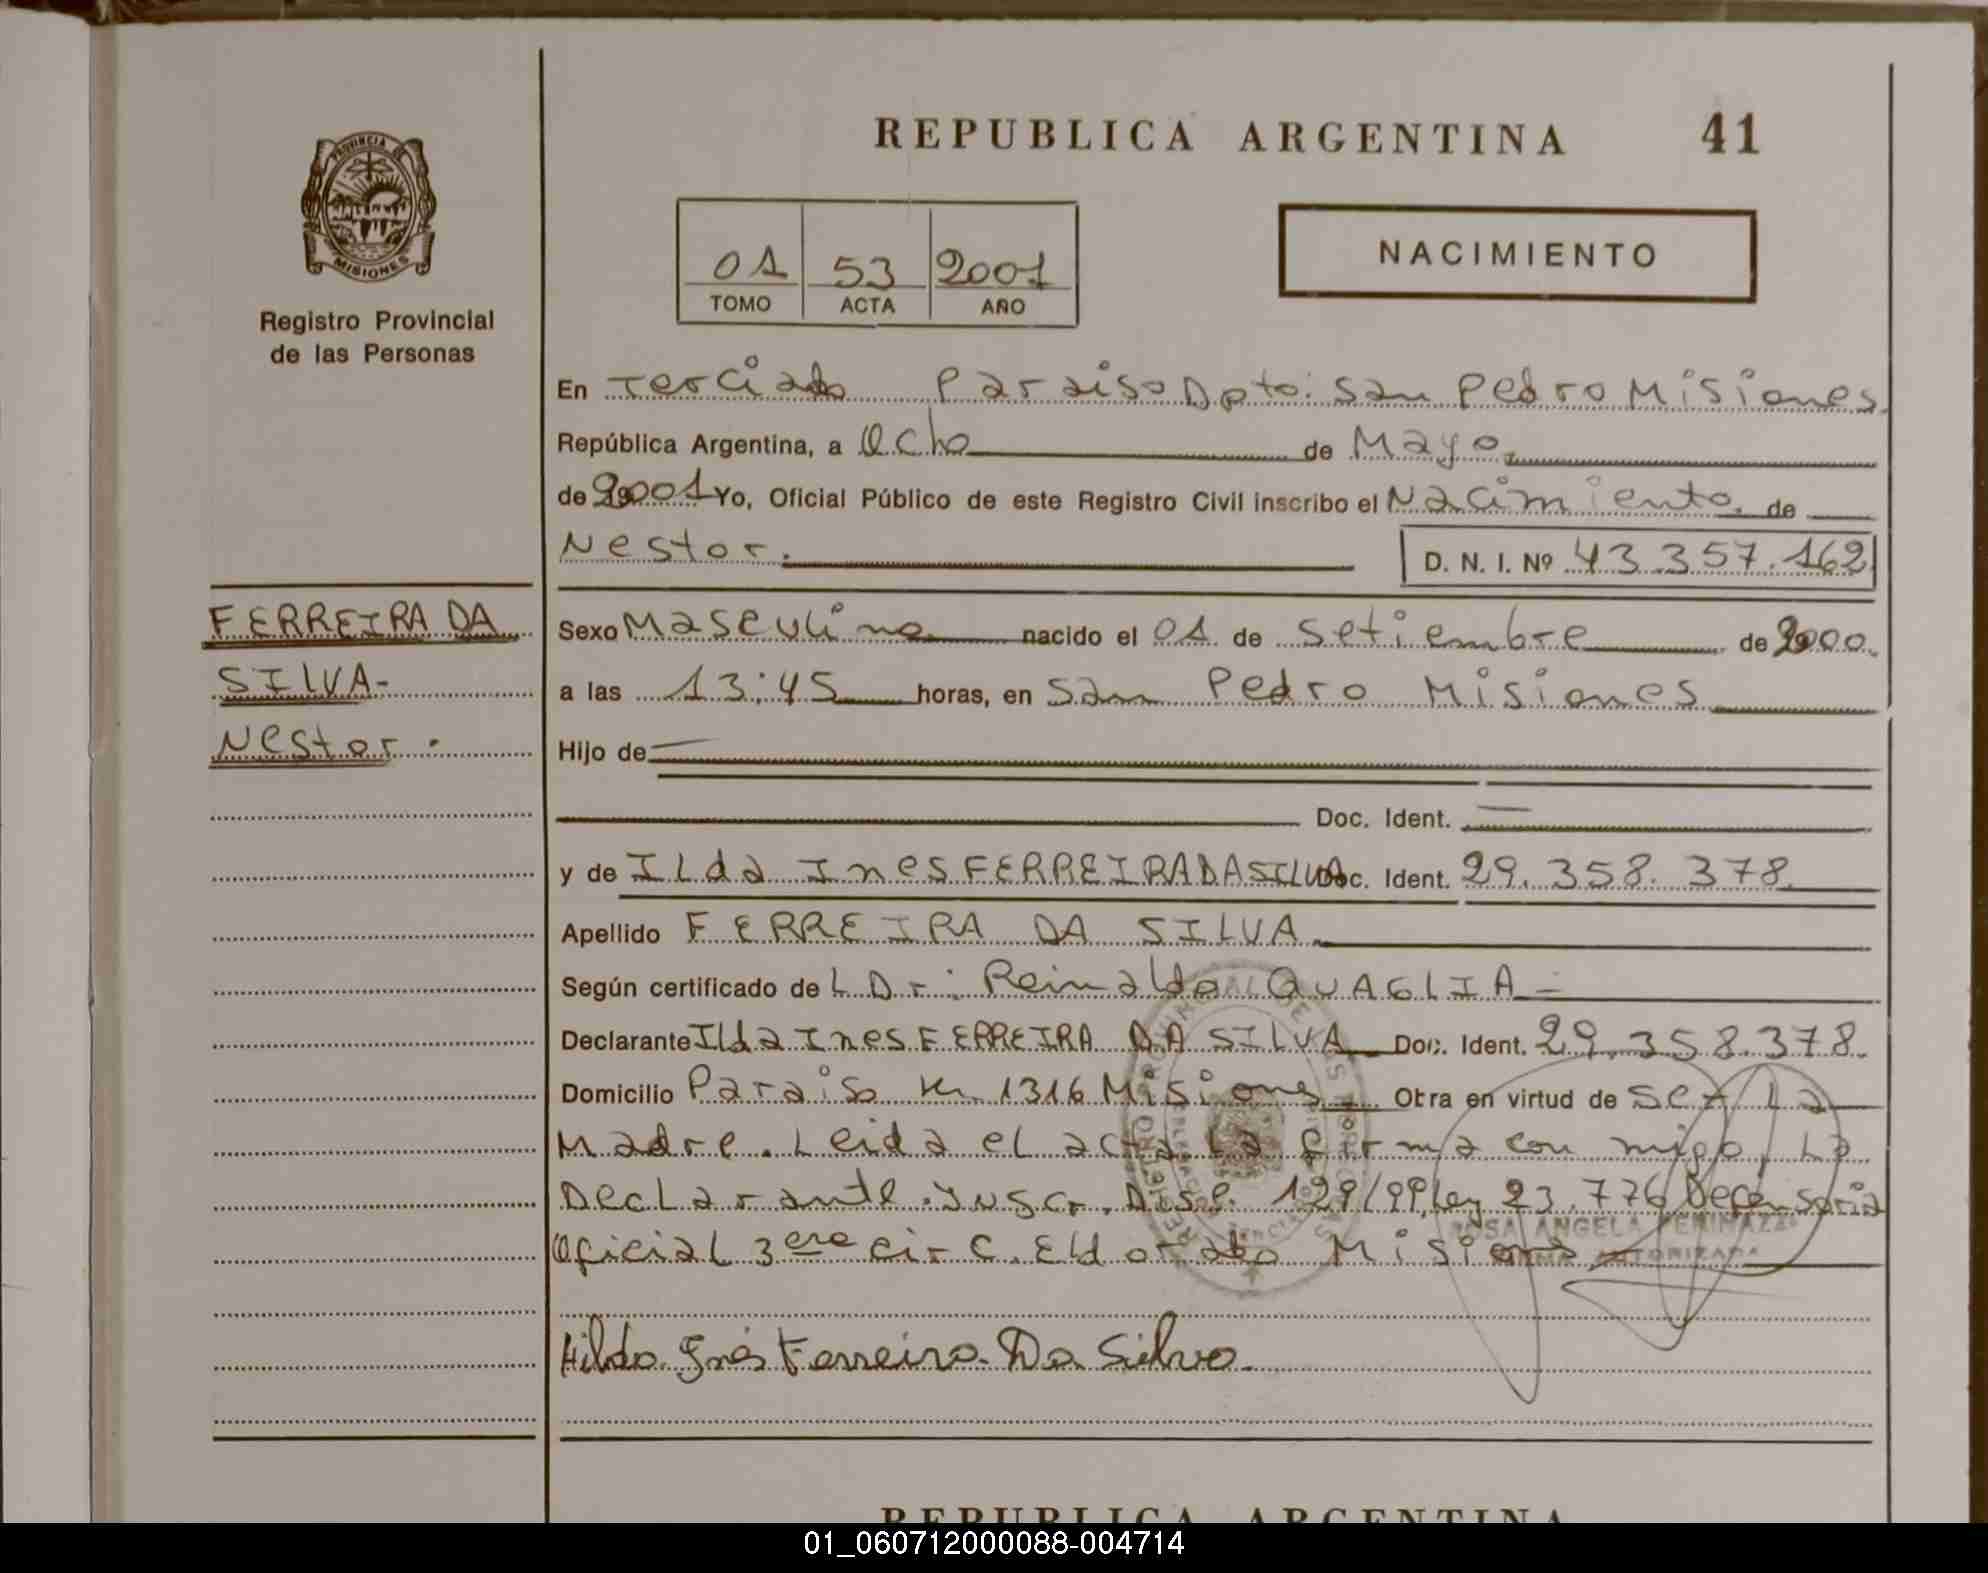 REPUBLICA ARGENTINA 41
PROVINCIA DE
MISIONES
Registro Provincial
de las Personas
NACIMIENTO
01 53 2001
TOMO ACTA AÑO
En Terciado Paraiso Dpto: San Pedro Misiones
República Argentina, a Ocho de Mayo
de 2001 Yo, Oficial Público de este Registro Civil inscribo el Nacimiento de
Nestor. D. N. I. Nº 43.357.162
FERREIRA DA
SILVA-
Nestor.
Sexo Masculino nacido el 01 de Setiembre de 2000
a las 13:45 horas, en San Pedro Misiones
Hijo de
Doc. Ident.
y de Ilda Ines FERREIRA DA SILVA Doc. Ident. 29.358.378
Apellido FERREIRA DA SILVA
Según certificado de L Dr: Reinaldo QUAGLIA -
Declarante Ilda Ines FERREIRA DA SILVA Doc. Ident. 29.358.378.
Domicilio Paraiso Km 1316 Misiones Otra en virtud de ser La
Madre. Leida el acta La firma con migo, La
Declarante. Inscr. Disp. 129/99, Ley 23.776 Defensoria
Oficial 3era circ. Eldorado Misiones
ROSA ANGELA
AUTORIZADA
Hilda Inés Ferreira Da Silva.
REPUBLICA ARGENTINA
01_060712000088-004714